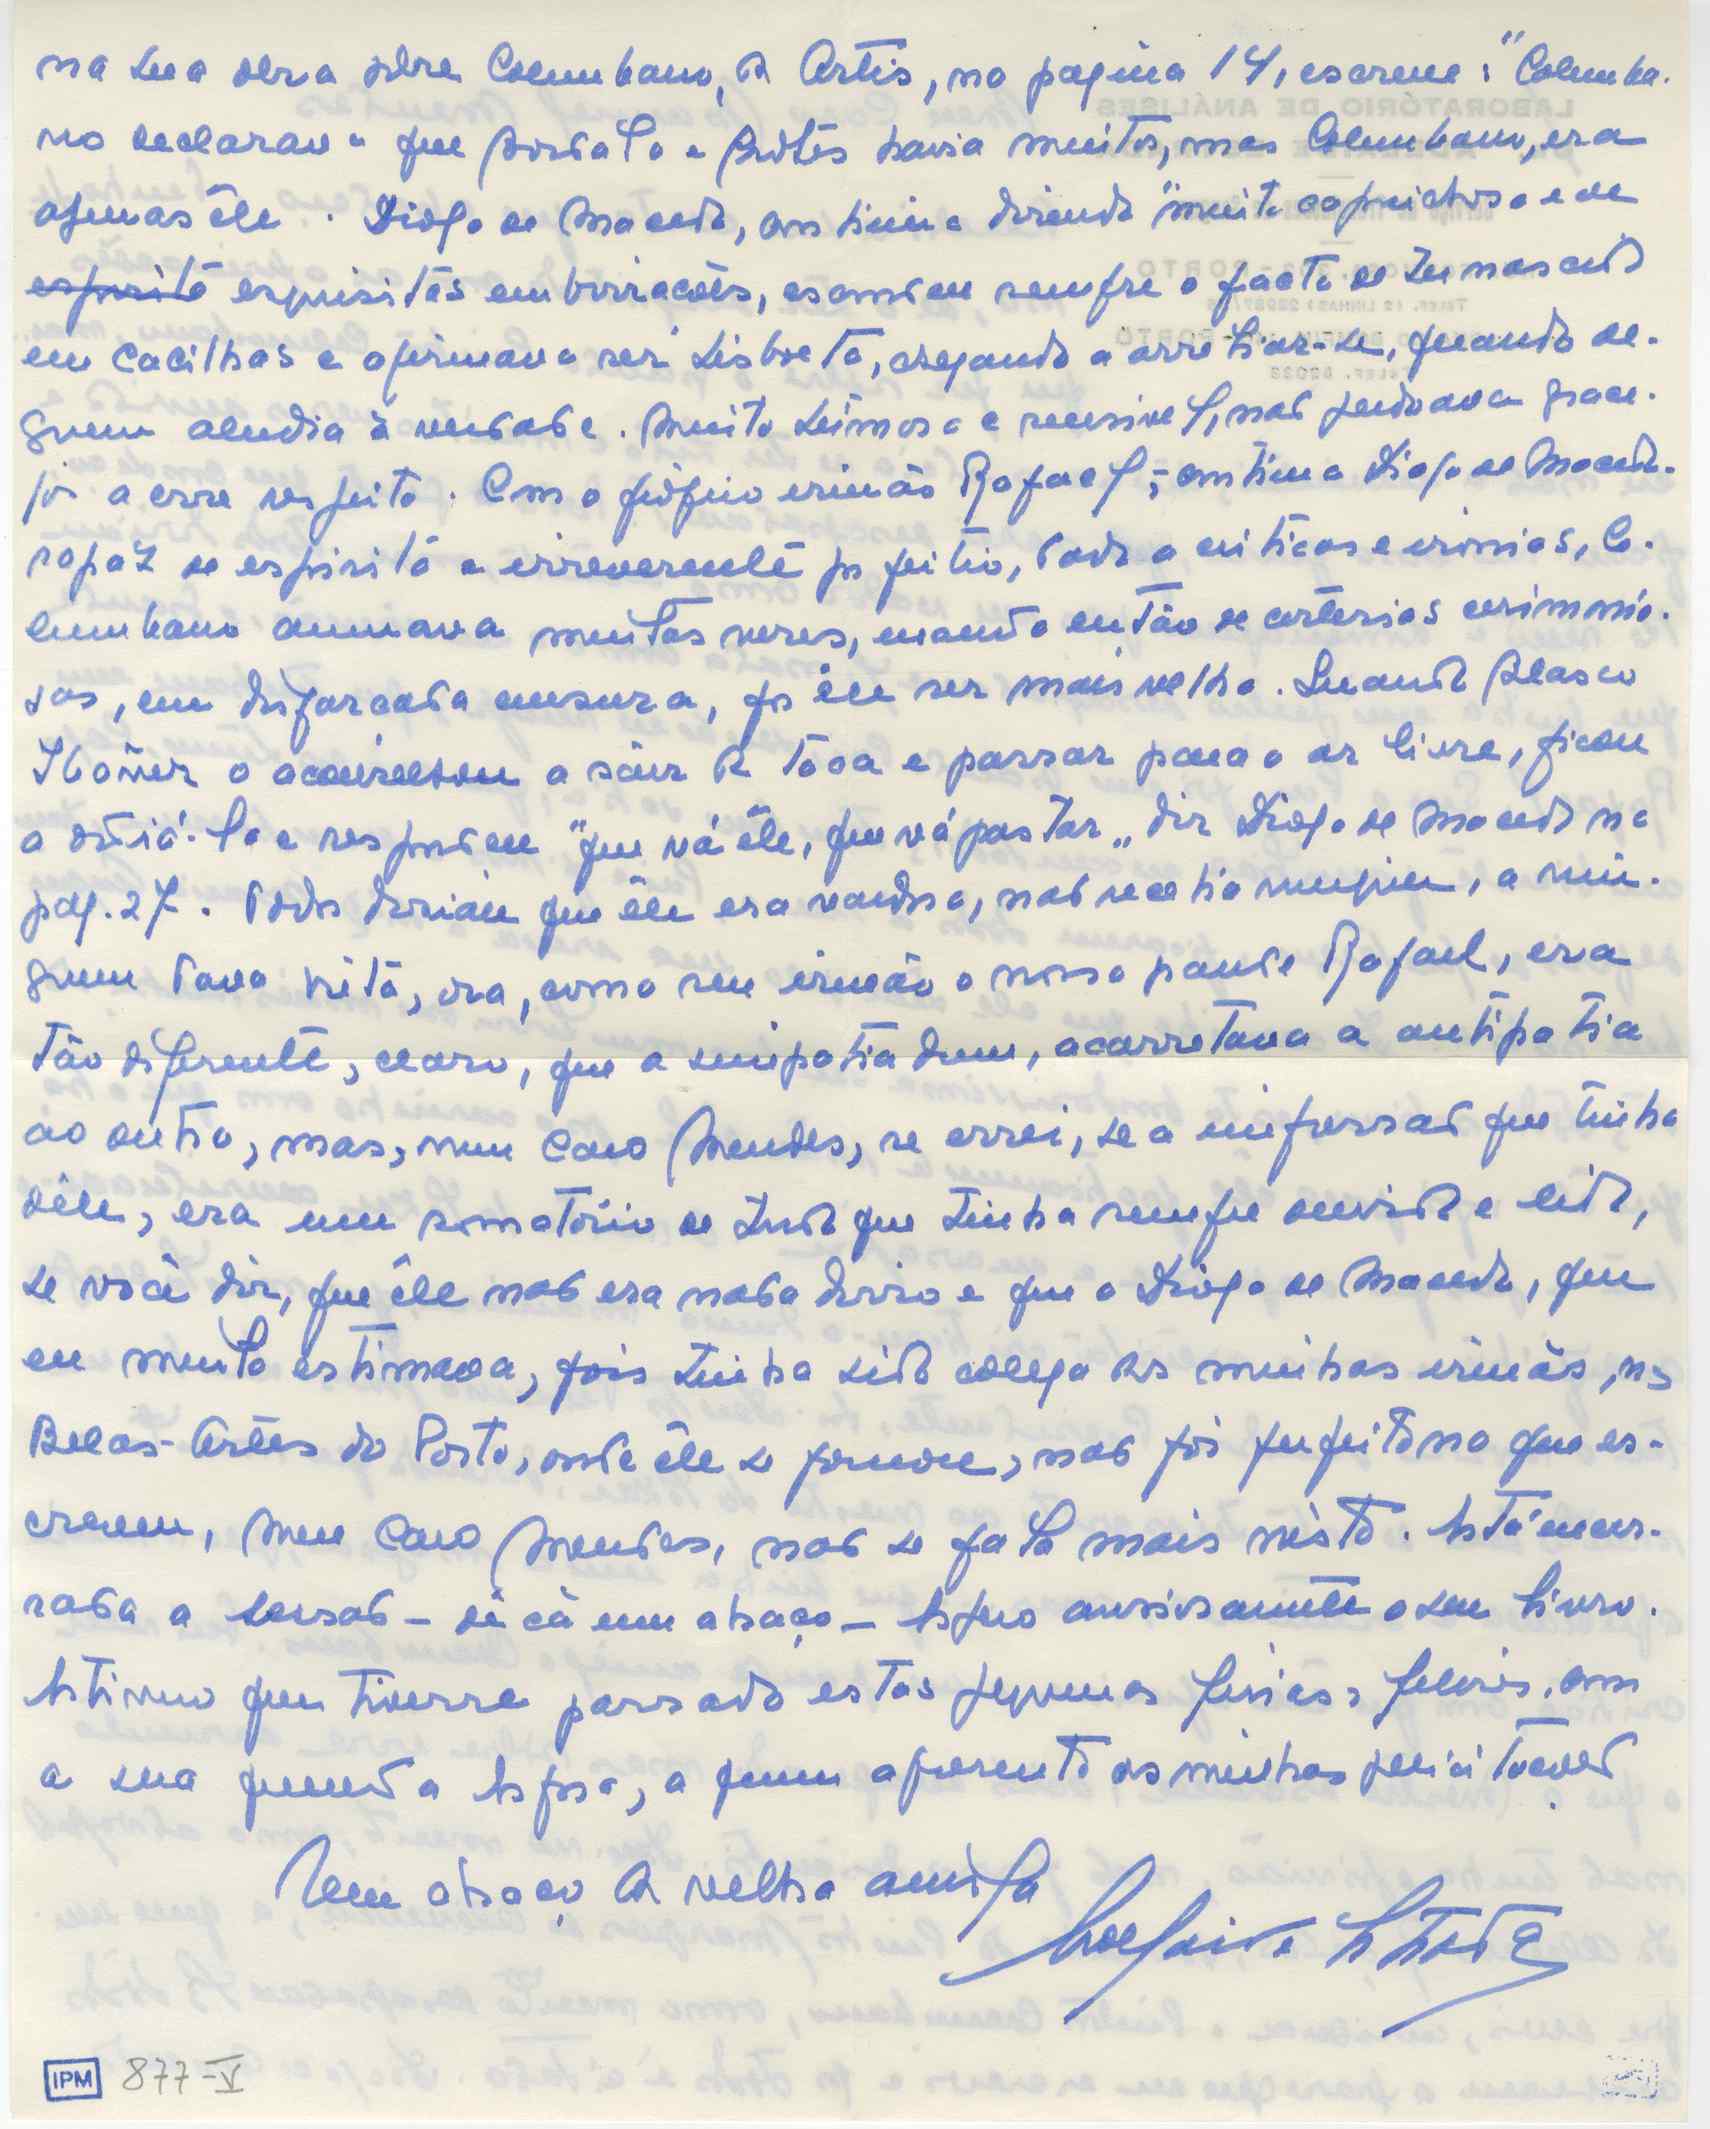 na sua obra sobre Columbano, da Artis, na pagina 14, escreve: "Columba-
no declarava que Bordalo e Protes havia muitos, mas Columbano, era
apenas êle. Diogo de Macedo, continua dizendo "muito caprichoso e de
espirito esquisitas embirrações, escondeu sempre o facto de ter nascido
em Cacilhas e afirmava ser Lisboeta, chegando a arreliar-se, quando al-
guem aludia à verdade. Muito teimoso e sensivel, não perdoava grace-
jos a esse respeito. Com o próprio irmão Rafael, - continua Diogo de Macedo -
rapaz de espirito e irreverente por feitio, dado a criticas e ironias, Co-
lumbano amuava muitas vezes, usando então de cortesias cerimonio-
sas, em disfarçada censura, por êle ser mais velho. Quando Blasco
Ibañez o aconselhou a sair da tóca e passar para o ar livre, ficou
a odiá-lo e respondeu "que vá êle, que vá pastar" diz Diogo de Macedo na
pag. 27. Todos diziam que êle era vaidoso, não recebia ninguem, a nin-
guem dava trela, ora, como seu irmão o nosso grande Rafael, era
tão diferente, claro, que a simpatia dum, acarretava a antipatia
ao outro, mas, meu caro Mendes, se errei, se a impressão que tinha
dêle, era um somatório de tudo que tinha sempre ouvido e lido,
se você diz, que êle não era nada disso e que o Diogo de Macedo, que
eu muito estimava, pois tinha sido colega das minhas irmãs, nas
Belas-Artes do Porto, onde êle se formou, não foi perfeito no que es-
creveu, meu Caro Mendes, não se fala mais nisto. Está encer-
rada a sessão - dê cá um abraço - Espero ansiosamente o seu livro.
Estimo que tivesse passado estas pequenas férias, felizes, com
a sua querida Esposa, a quem apresento as minhas felicitações.
Um abraço da velha amiga
IPM 877-V